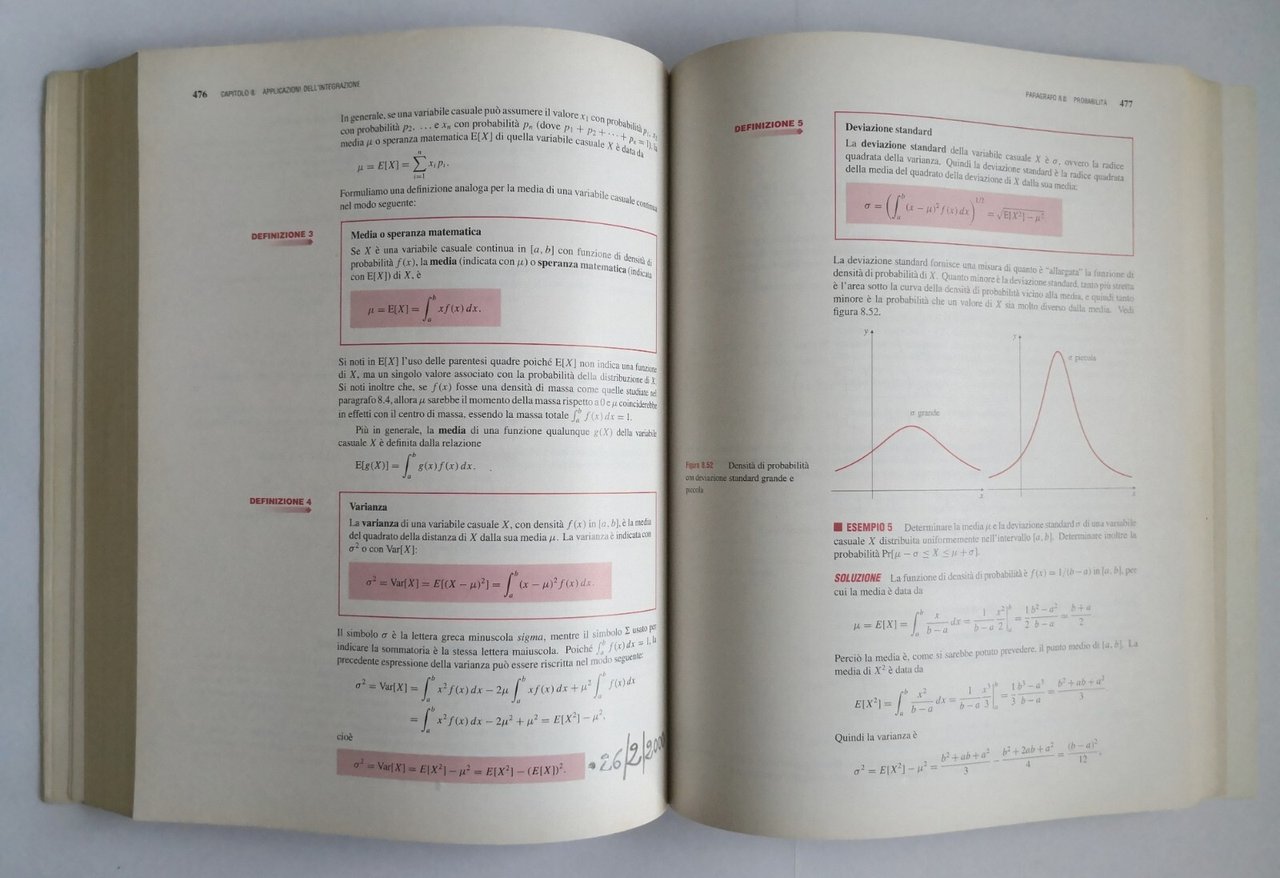 476 CAPITOLO 8 APPLICAZIONI DELL'INTEGRAZIONE
In generale, se una variabile casuale può assumere il valore x₁ con probabilità p₁, x₂
con probabilità p₂, … e xₙ con probabilità pₙ (dove p₁ + p₂ + ⋯ + pₙ = 1), la
media μ o speranza matematica E[X] di quella variabile casuale X è data da
μ = E[X] = ∑ᵢ₌₁ⁿ xᵢpᵢ.
Formuliamo una definizione analoga per la media di una variabile casuale continua
nel modo seguente:
DEFINIZIONE 3
Media o speranza matematica
Se X è una variabile casuale continua in [a, b] con funzione di densità di
probabilità f(x), la media (indicata con μ) o speranza matematica (indicata
con E[X]) di X, è
μ = E[X] = ∫ₐᵇ xf(x) dx.
Si noti in E[X] l'uso delle parentesi quadre poiché E[X] non indica una funzione
di X, ma un singolo valore associato con la probabilità della distribuzione di X.
Si noti inoltre che, se f(x) fosse una densità di massa come quelle studiate nel
paragrafo 8.4, allora μ sarebbe il momento della massa rispetto a 0 e μ coinciderebbe
in effetti con il centro di massa, essendo la massa totale ∫ₐᵇ f(x) dx = 1.
Più in generale, la media di una funzione qualunque g(X) della variabile
casuale X è definita dalla relazione
E[g(X)] = ∫ₐᵇ g(x) f(x) dx.
DEFINIZIONE 4
Varianza
La varianza di una variabile casuale X, con densità f(x) in [a, b], è la media
del quadrato della distanza di X dalla sua media μ. La varianza è indicata con
σ² o con Var[X]:
σ² = Var[X] = E[(X − μ)²] = ∫ₐᵇ (x − μ)² f(x) dx.
Il simbolo σ è la lettera greca minuscola sigma, mentre il simbolo Σ usato per
indicare la sommatoria è la stessa lettera maiuscola. Poiché ∫ₐᵇ f(x) dx = 1, la
precedente espressione della varianza può essere riscritta nel modo seguente:
σ² = Var[X] = ∫ₐᵇ x² f(x) dx − 2μ ∫ₐᵇ xf(x) dx + μ² ∫ₐᵇ f(x) dx
= ∫ₐᵇ x² f(x) dx − 2μ² + μ² = E[X²] − μ²,
cioè
σ² = Var[X] = E[X²] − μ² = E[X²] − (E[X])².
26/2/200
PARAGRAFO 8.8 PROBABILITÀ 477
DEFINIZIONE 5
Deviazione standard
La deviazione standard della variabile casuale X è σ, ovvero la radice
quadrata della varianza. Quindi la deviazione standard è la radice quadrata
della media del quadrato della deviazione di X dalla sua media:
σ = (∫ₐᵇ (x − μ)² f(x) dx)^1/2 = √E[X²] − μ².
La deviazione standard fornisce una misura di quanto è "allargata" la funzione di
densità di probabilità di X. Quanto minore è la deviazione standard, tanto più stretta
è l'area sotto la curva della densità di probabilità vicino alla media, e quindi tanto
minore è la probabilità che un valore di X sia molto diverso dalla media. Vedi
figura 8.52.
y
σ grande
x
y
σ piccola
x
Figura 8.52 Densità di probabilità
con deviazione standard grande e
piccola
ESEMPIO 5 Determinare la media μ e la deviazione standard σ di una variabile
casuale X distribuita uniformemente nell'intervallo [a, b]. Determinare inoltre la
probabilità Pr[μ − σ ≤ X ≤ μ + σ].
SOLUZIONE La funzione di densità di probabilità è f(x) = 1/(b − a) in [a, b], per
cui la media è data da
μ = E[X] = ∫ₐᵇ x/(b − a) dx = 1/(b − a) x²/2 |ₐᵇ = 1/2 (b² − a²)/(b − a) = (b + a)/2
Perciò la media è, come si sarebbe potuto prevedere, il punto medio di [a, b]. La
media di X² è data da
E[X²] = ∫ₐᵇ x²/(b − a) dx = 1/(b − a) x³/3 |ₐᵇ = 1/3 (b³ − a³)/(b − a) = (b² + ab + a²)/3
Quindi la varianza è
σ² = E[X²] − μ² = (b² + ab + a²)/3 − (b² + 2ab + a²)/4 = (b − a)²/12.